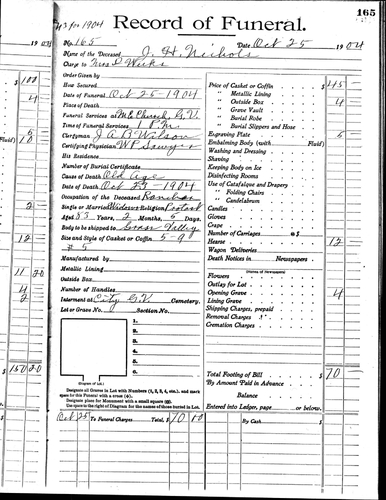 165
#3 for 1904
Record of Funeral.
No. 165 Date Oct 25 1904
Name of the Deceased J. H. Nichols
Charge to Mrs Wicks
Order Given by
How Secured
Date of Funeral Oct 25 - 1904
Place of Death
Funeral Services at M.E. Church, G.V.
Time of Funeral Services 1 P.M.
Clergyman J A B Wilson
Certifying Physician W P Sawyer
His Residence
Number of Burial Certificate
Cause of Death Old Age
Date of Death Oct 23 - 1904
Occupation of the Deceased Rancher
Single or Married Widower Religion Protest
Aged 83 Years, 2 Months, 6 Days.
Body to be shipped to Grass Valley
Size and Style of Casket or Coffin 5-9
# 5
Manufactured by
Metallic Lining
Outside Box
Number of Handles
Interment at City G.V. Cemetery.
Lot or Grave No. Section No.
1.
2.
3.
4.
5.
6.
(Diagram of Lot.)
Designate all Graves in Lot with Numbers (1, 2, 3, 4, etc.), and mark
space for this Funeral with a cross (+).
Designate place for Monument with a small square (□).
Use space to the right of Diagram for the names of those buried in Lot.
Oct 25 To Funeral Charges Total, $ 70 00
Price of Casket or Coffin $ 45
" Metallic Lining
" Outside Box 4
" Grave Vault
" Burial Robe
" Burial Slippers and Hose
Engraving Plate 5
Embalming Body (with Fluid)
Washing and Dressing
Shaving
Keeping Body on Ice
Disinfecting Rooms
Use of Catafalque and Drapery
" Folding Chairs
" Candelabrum
Candles
Gloves
Crape
Number of Carriages @ $
Hearse 12
Wagon Deliveries
Death Notices in Newspapers
(Names of Newspapers)
Flowers
Outlay for Lot
Opening Grave 4
Lining Grave
Shipping Charges, prepaid
Removal Charges
Cremation Charges
Total Footing of Bill $ 70
By Amount Paid in Advance
Balance
Entered into Ledger, page or below.
By Cash $